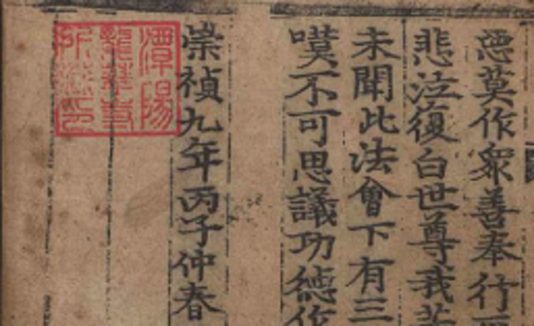 惡莫作衆善奉行
悲泣復白世尊我昔
未聞此法會下有三
嘆不可思議功德作
崇禎九年丙子仲春
潭陽
龍華寺
所